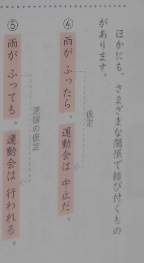 ほかにも、さまざまな関係で結び付くもの
があります。
④ 雨が ふったら、運動会は 中止だ。
仮定
⑤ 雨が ふっても、運動会は 行われる。
逆接の仮定